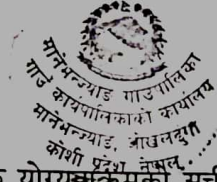 मानेभन्ज्याङ गाउँपालिका
गाउँ कार्यपालिकाको कार्यालय
मानेभन्ज्याङ, ओखलढुंगा
कोशी प्रदेश, नेपाल